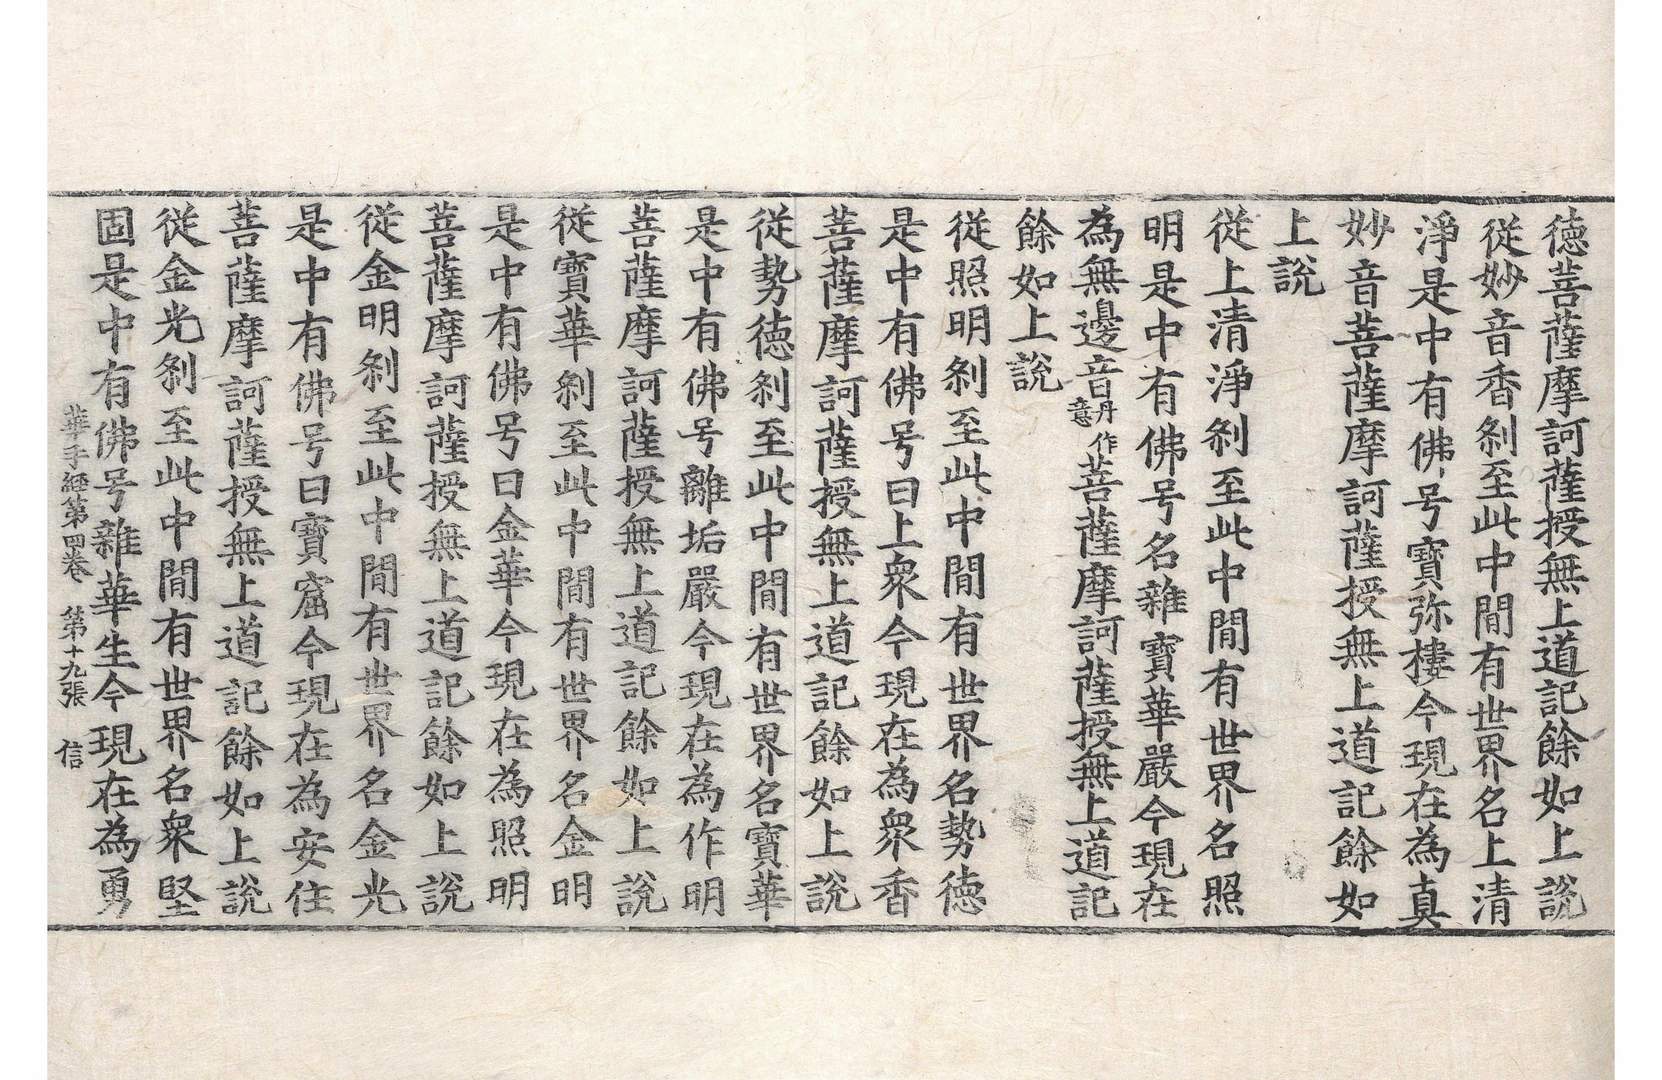 德菩薩摩訶薩授無上道記餘如上說
從妙音香剎至此中間有世界名上清
淨是中有佛号寶弥樓今現在為真
妙音菩薩摩訶薩授無上道記餘如
上說
從上清淨剎至此中間有世界名照
明是中有佛号名雜寶華嚴今現在
為無邊音丹作意菩薩摩訶薩授無上道記
餘如上說
從照明剎至此中間有世界名勢德
是中有佛号曰上衆今現在為衆香
菩薩摩訶薩授無上道記餘如上說
從勢德剎至此中間有世界名寶華
是中有佛号離垢嚴今現在為作明
菩薩摩訶薩授無上道記餘如上說
從寶華剎至此中間有世界名金明
是中有佛号曰金華今現在為照明
菩薩摩訶薩授無上道記餘如上說
從金明剎至此中間有世界名金光
是中有佛号曰寶窟今現在為安住
菩薩摩訶薩授無上道記餘如上說
從金光剎至此中間有世界名衆堅
固是中有佛号雜華生今現在為勇
華手經第四卷 第十九張 信